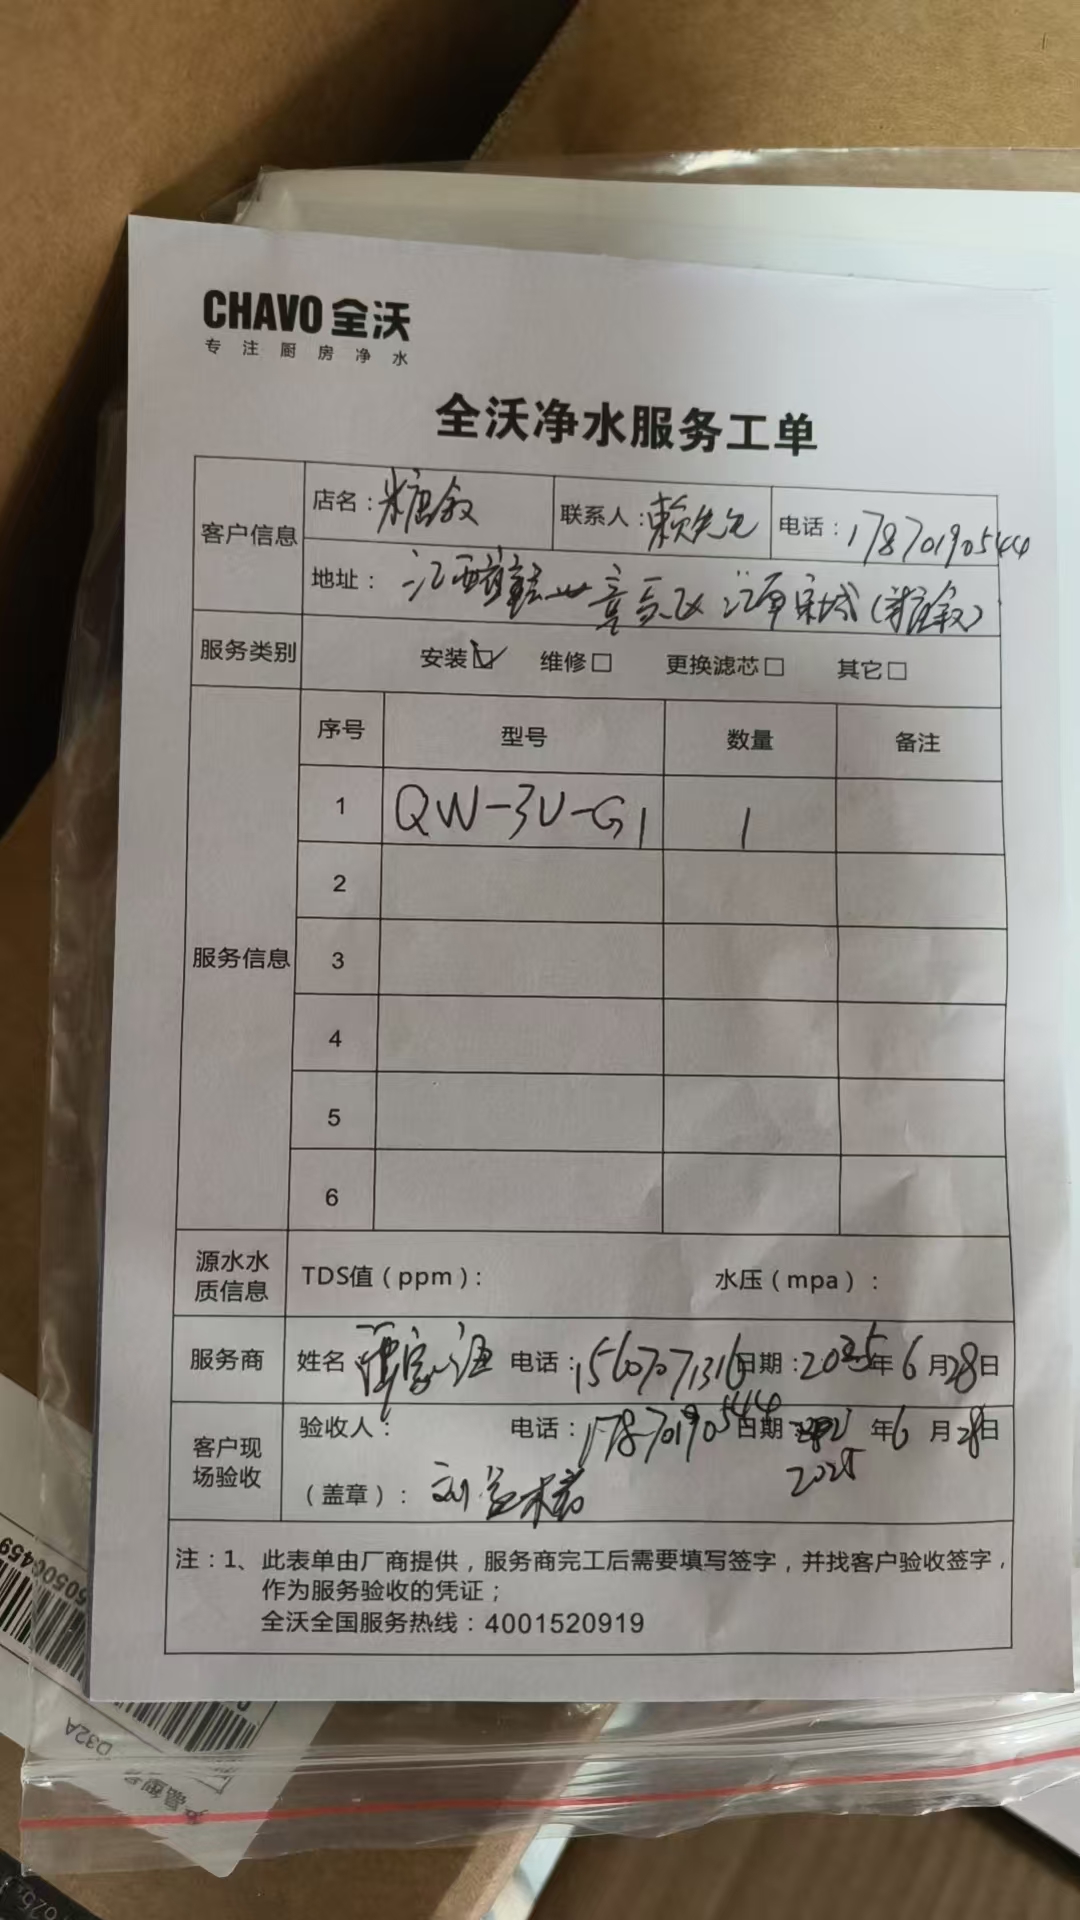 CHAVO 全沃
专注厨房净水
全沃净水服务工单
客户信息
店名：糖叙
联系人：赖先允
电话：17870190544
地址：江西赣 江南宋城（糖叙）
服务类别
安装☑ 维修□ 更换滤芯□ 其它□
服务信息
序号 型号 数量 备注
1 QW-3U-G1 1
2
3
4
5
6
源水水质信息
TDS值（ppm）： 水压（mpa）：
服务商
姓名 电话：15607071316 日期：2025年6月28日
客户现场验收
验收人： 电话：17870190544 日期： 年6月28日
2025
（盖章）：刘
注：1、此表单由厂商提供，服务商完工后需要填写签字，并找客户验收签字，
作为服务验收的凭证；
全沃全国服务热线：4001520919
D32A